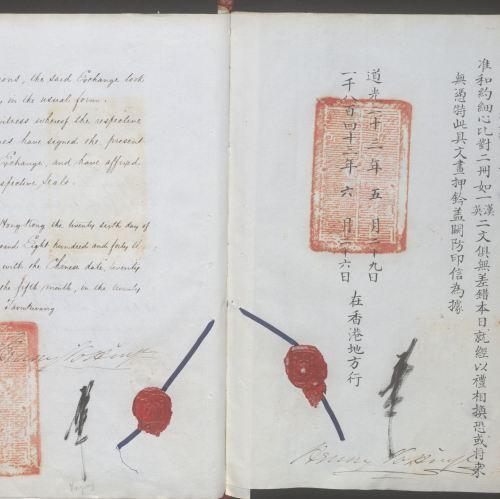 ions, the said Exchange took
in the usual form.
itness whereof the respective
have signed the present
Exchange, and have affixed
spective Seals.
Hong Kong the twenty sixth day of
and Eight hundred and forty th
with the Chinese date, twenty
the fifth month, in the twenty
Taoukwang
准和約細心比對二冊如一漢英二文俱無差錯本日就經以禮相換恐或將來
無憑特此具文畫押鈐盖關防印信為據
道光二十三年五月二十九日
一千八百四十三年六月二十六日
在香港地方行
Henry Pottinger